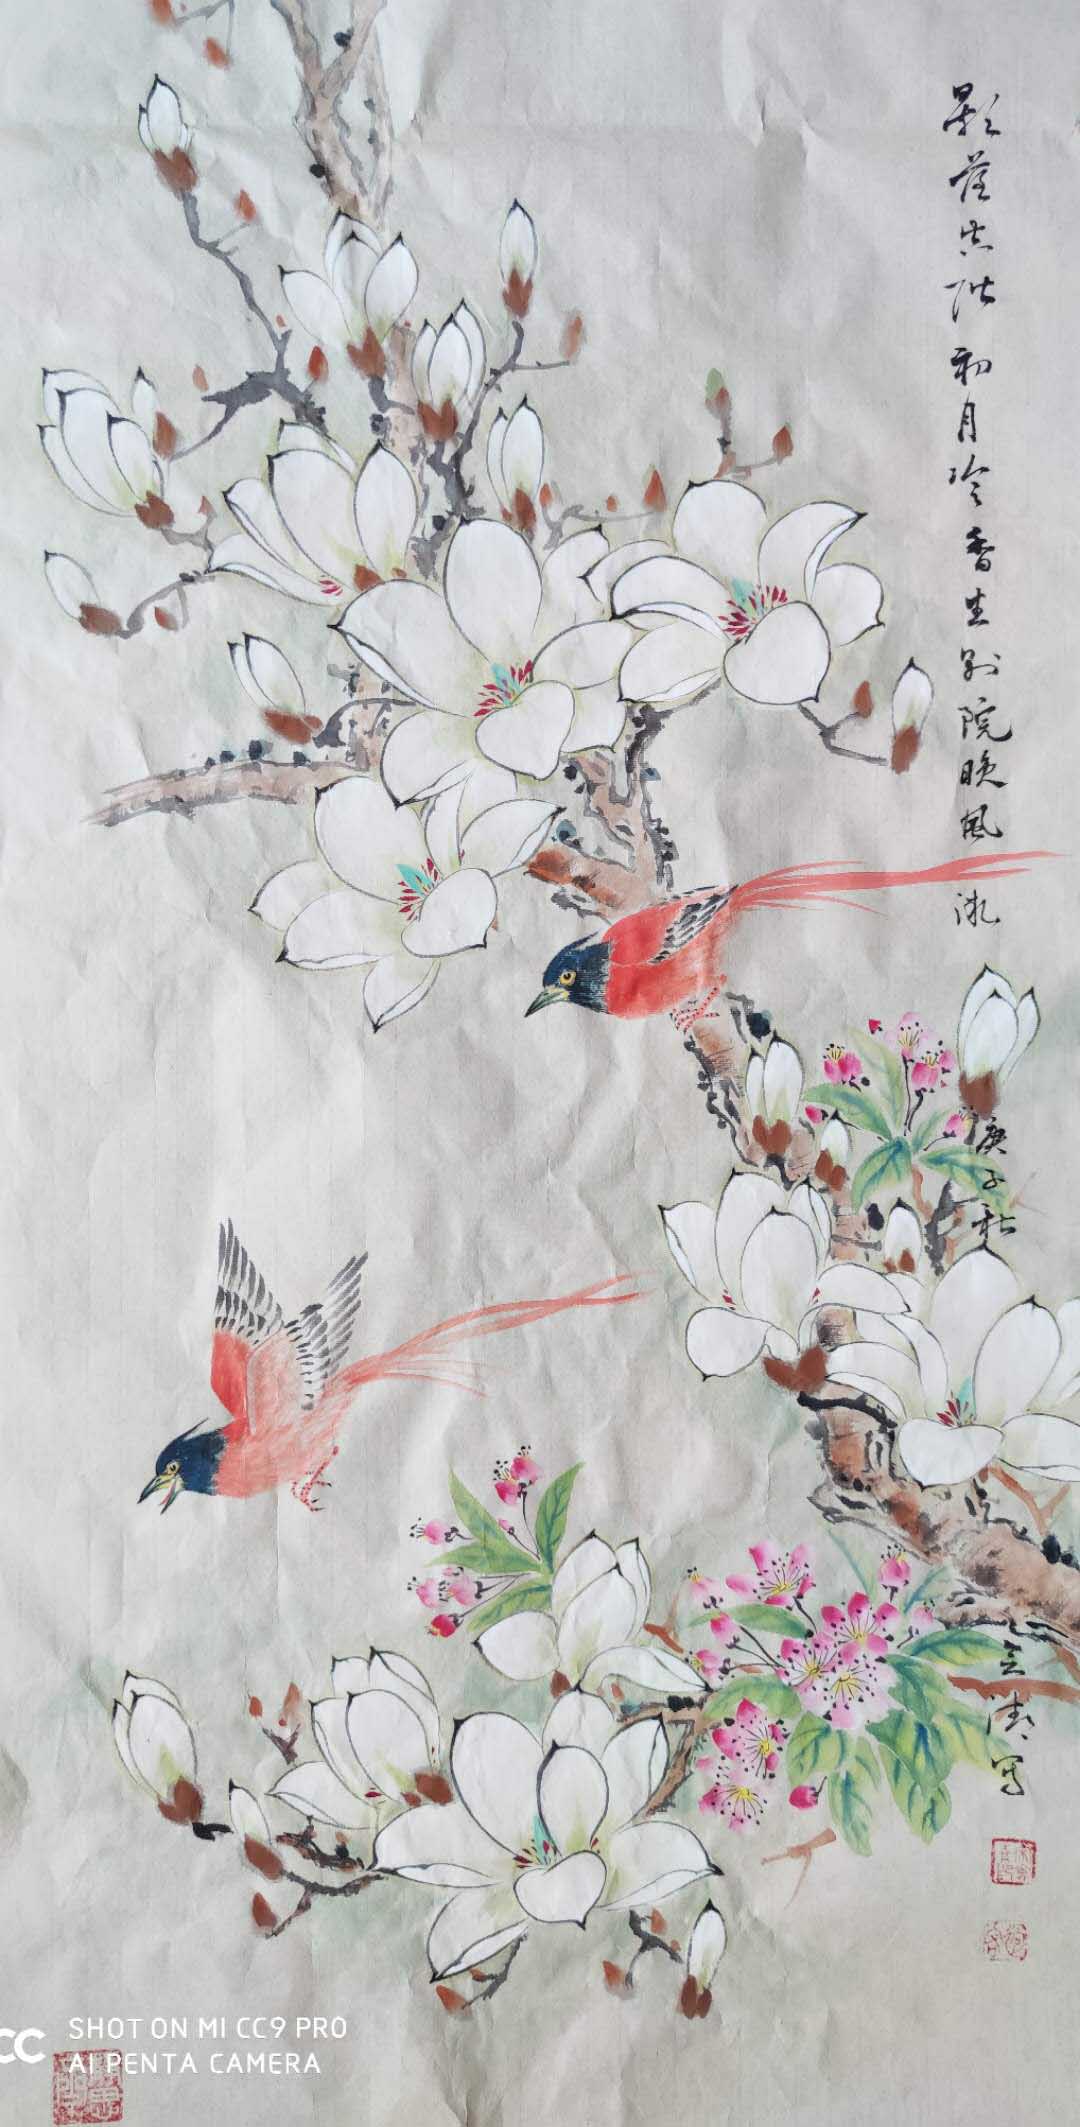 影落空阶初月冷香生别院晚风微
庚子秋
写
SHOT ON MI CC9 PRO
AI PENTA CAMERA